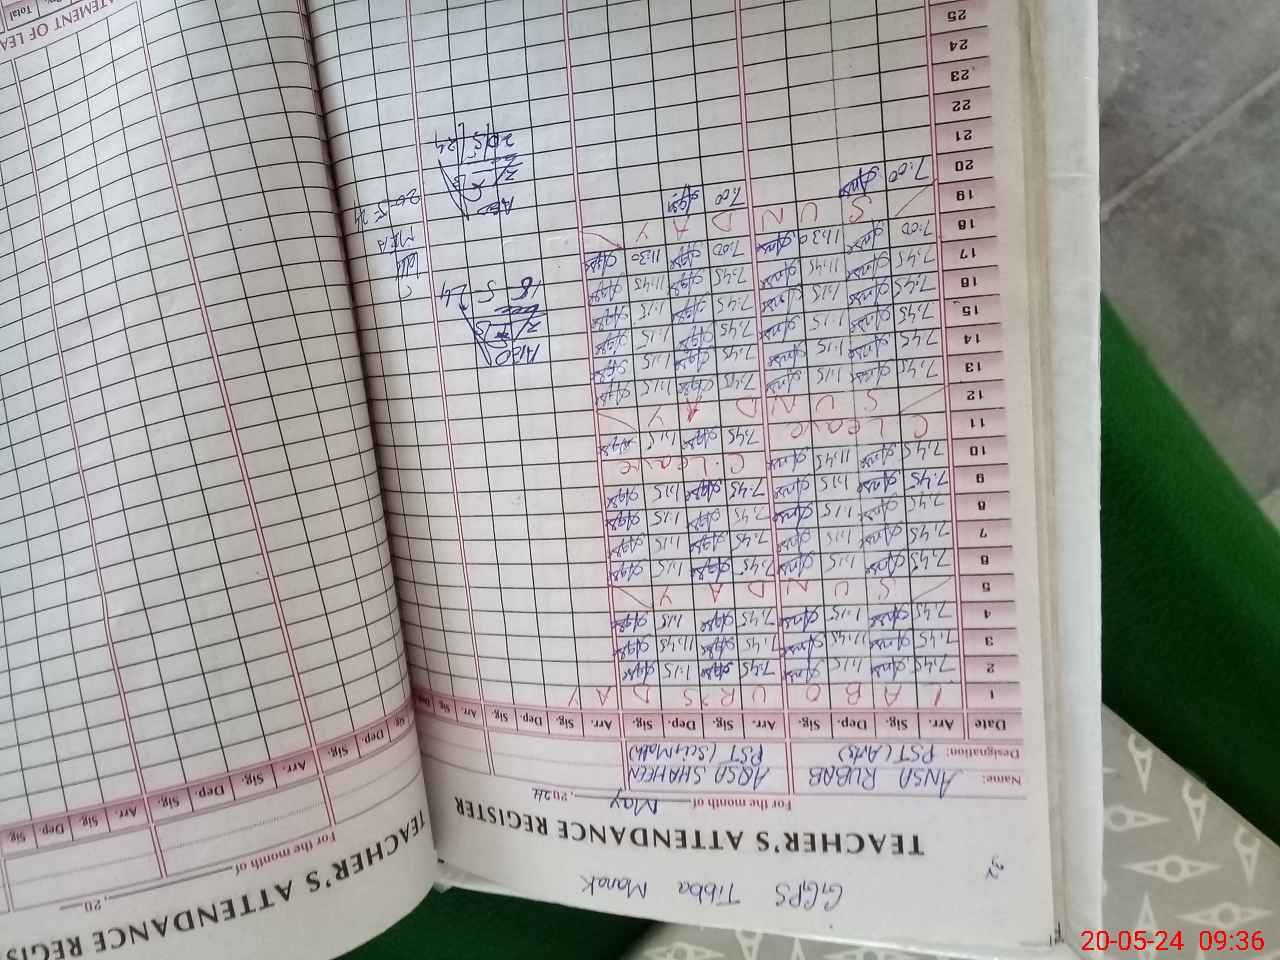 GGPS Tibba Manak
TEACHER'S ATTENDANCE REGISTER
For the month of May, 2024
Name: ANSA RUBAB AQSA SHAHEEN
Designation: PST (Arts) PST (Sci, Math)
Date Arr. Sig. Dep. Sig. Arr. Sig. Dep. Sig. Arr. Sig. Dep. Sig. Arr. Sig.
1 L A B O U R'S D A Y
2 7:45 1:15 7:45 1:15
3 7:45 11:45 7:45 11:45
4 7:45 1:15 7:45 1:15
5 S U N D A Y
6 7:45 1:15 7:45 1:15
7 7:45 1:15 7:45 1:15
8 7:45 1:15 7:45 1:15
9 7:45 1:15 7:45 1:15
10 7:45 11:45 C. Leave
11 C Leave 7:45 1:15
12 S U N D A Y
13 7:45 1:15 7:45 1:15
14 7:45 1:15 7:45 1:15
15 7:45 1:15 7:45 1:15
16 7:45 1:15 7:45 1:15
17 7:45 11:45 7:45 11:45
18 7:00 11:30 7:00 11:30
19 S U N D A Y
20 7:00 7:00
21
22
23
24
25
AEO
16 5 24
AEO
20/5/24
MEA
20-5-24
TEACHER'S ATTENDANCE REGIS
For the month of , 20
Arr. Sig. Dep. Sig. Arr. Sig. Dep. Sig.
ATEMENT OF LEA
Total
20-05-24 09:36